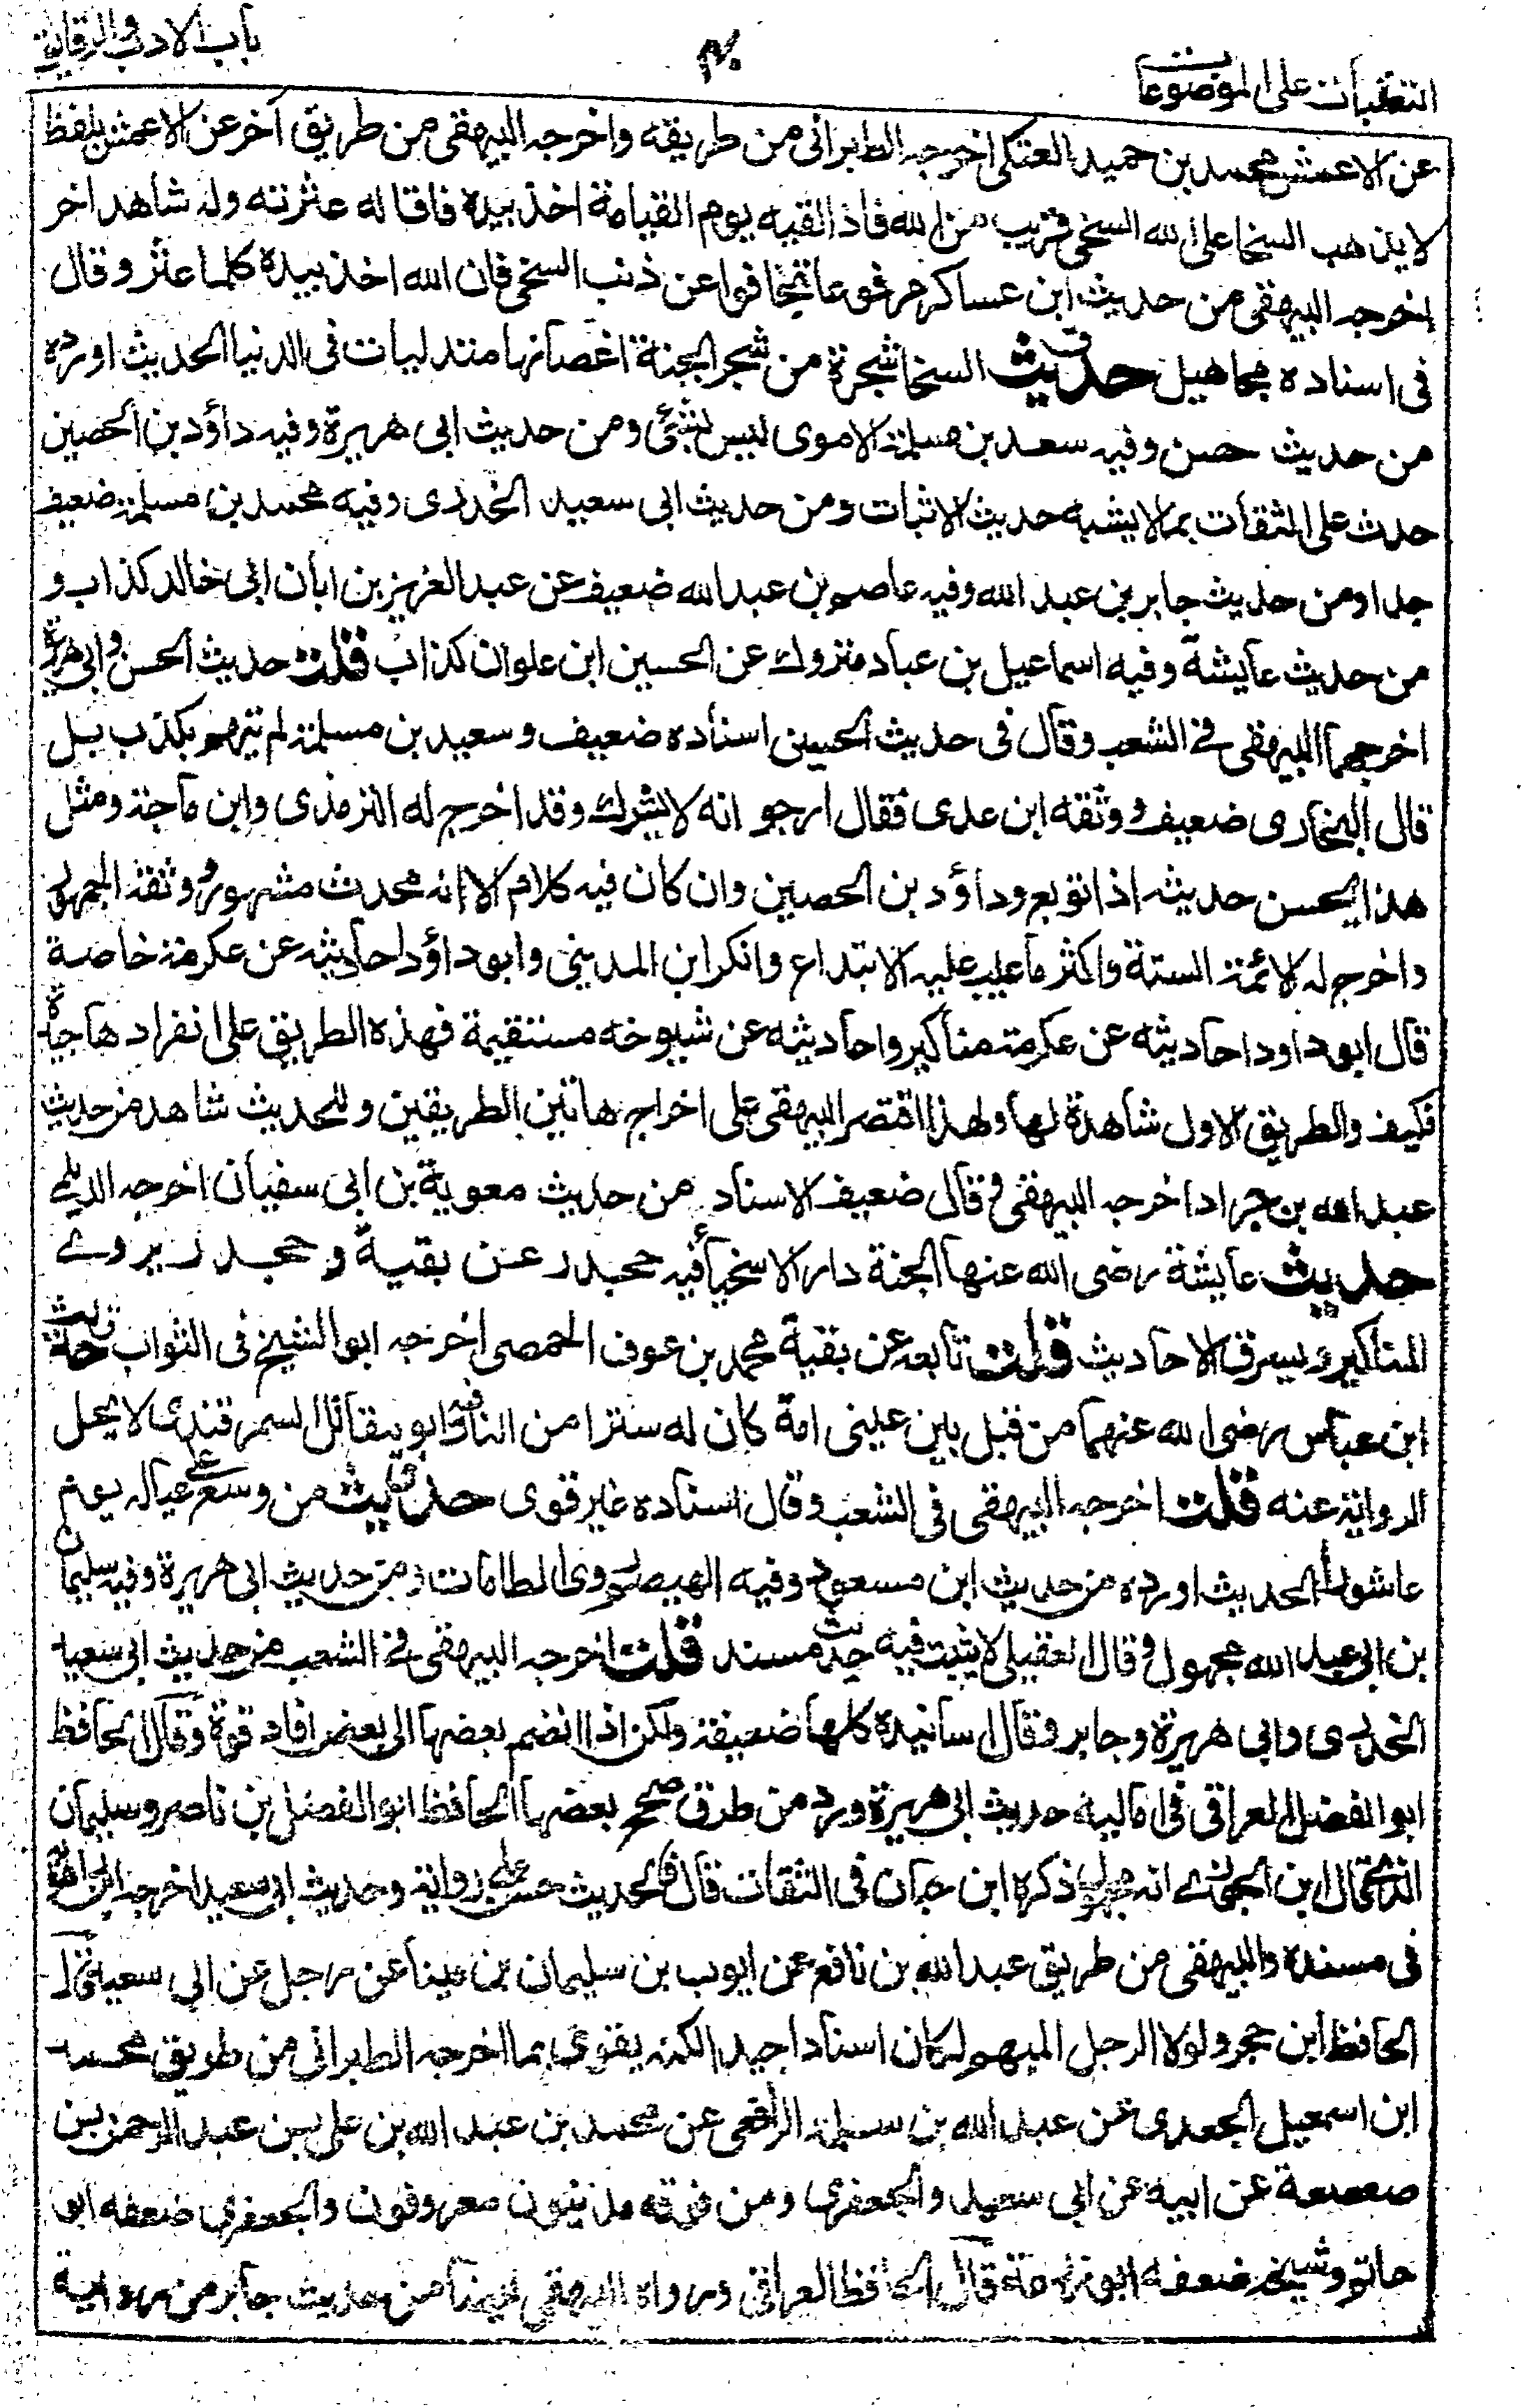 باب الادب والرقايق
۴۰
التعقبات على الموضوعات
عن الاعمش محمد بن حميد العتكى اخرجه الطبرانى من طريقه واخرجه البيهقى من طريق آخر عن الاعمش بلفظ
لا يذهب السخا على الله السخى قريب من الله فاذا لقيه يوم القيامة اخذ بيده فاقاله عثرته وله شاهد اخر
اخرجه البيهقى من حديث ابن عساكر مرفوعا تجافوا عن ذنب السخى فان الله اخذ بيده كلما عثر وقال
فى اسناده مجاهيل حديث السخا شجرة من شجر الجنة اغصانها متدليات فى الدنيا الحديث اورده
من حديث حسن وفيه سعد بن مسلمة الاموى ليس بشئ ومن حديث ابى هريرة وفيه داؤد بن الحصين
حدث على الثقات بما لا يشبه حديث الاثبات ومن حديث ابى سعيد الخدرى وفيه محمد بن مسلمة ضعيف
جدا ومن حديث جابر بن عبد الله وفيه عاصم بن عبد الله ضعيف عن عبد العزيز بن ابان ابى خالد كذاب و
من حديث عايشة وفيه اسماعيل بن عباد متروك عن الحسين ابن علوان كذاب قلت حديث الحسن وابى هريرة
اخرجهما البيهقى فى الشعب وقال فى حديث الحسين اسناده ضعيف وسعيد بن مسلمة لم يتهم بكذب بل
قال البخارى ضعيف ووثقه ابن عدى فقال ارجو انه لا يترك وقد اخرج له الترمذى وابن ماجة ومثل
هذا يحسن حديثه اذا توبع وداؤد بن الحصين وان كان فيه كلام الا انه محدث مشهور وثقة الجمهور
واخرج له الائمة الستة واكثر ما عيب عليه الابتداع وانكر ابن المدينى وابو داؤد احاديثه عن عكرمة خاصة
قال ابو داود احاديثه عن عكرمة مناكير واحاديثه عن شيوخه مستقيمة فهذه الطريق على انفرادها جيدة
فكيف والطريق الاول شاهدة لها ولهذا اقتصر البيهقى على اخراج هاتين الطريقين وللحديث شاهد من حديث
عبد الله بن جراد اخرجه البيهقى وقال ضعيف الاسناد من حديث معوية بن ابى سفيان اخرجه الديلمى
حديث عايشة رضى الله عنها الجنة دار الاسخيأ فيه جحدر عن بقية و جحدر يروے
المناكير ويسرق الاحاديث قلت تابعه عن بقية محمد بن عوف الحمصى اخرجه ابو الشيخ فى الثواب حديث
ابن عباس رضى الله عنهما من قبل بين عينى امه كان له سترا من النار فيه ابو مقاتل السمرقندى لا يحل
الرواية عنه قلت اخرجه البيهقى فى الشعب وقال اسناده غير قوى حديث من وسع على عياله يوم
عاشورا الحديث اورده من حديث ابن مسعود وفيه الهيصم يروى الطامات ومن حديث ابى هريرة وفيه سليمان
بن ابى عبد الله مجهول وقال العقيلى لا يثبت فيه حديث مسند قلت اخرجه البيهقى فى الشعب من حديث ابى سعيد
الخدرى وابى هريرة وجابر وقال اسانيده كلها ضعيفة ولكن اذا انضم بعضها الى بعض افاد قوة وقال الحافظ
ابو الفضل العراقى فى اماليه حديث ابى هريرة ورد من طرق صحح بعضها الحافظ ابو الفضل بن ناصر وسليمان
الذى قال ابن الجوزى انه مجهول ذكره ابن حبان فى الثقات قال فالحديث حسن على روايه وحديث ابى سعيد اخرجه ابن راهويه
فى مسنده والبيهقى من طريق عبد الله بن نافع عن ايوب بن سليمان بن مينا عن رجل عن ابى سعيد قال
الحافظ ابن حجر ولولا الرجل المبهم لكان اسنادا جيدا لكنه يقوى بما اخرجه الطبرانى من طريق محمد
ابن اسمعيل الجعدرى عن عبد الله بن سلمة الرافعى عن محمد بن عبد الله بن على بن عبد الرحمن بن
صعصعة عن ابيه عن ابى سعيد والجعفرى ومن فوقه مدنيون معروفون والجعفرى ضعفه ابو
حاتم وشيخه ضعفه ابو زرعة قال الحافظ العراقى ورواه البيهقى ايضا من حديث جابر من رواية